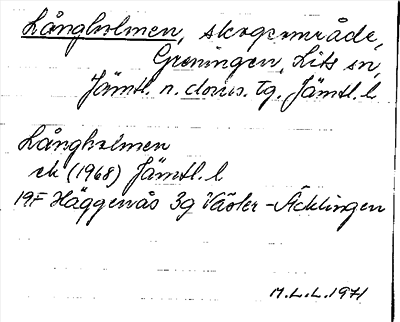 Långholmen, skogsområde,
Greningen, Lits sn,
Jämtl. n. doms. tg, Jämtl. l
Långholmen
ek (1968) Jämtl. l
19F Häggenås 3g Väster-Äcklingen
M.L.L. 1971